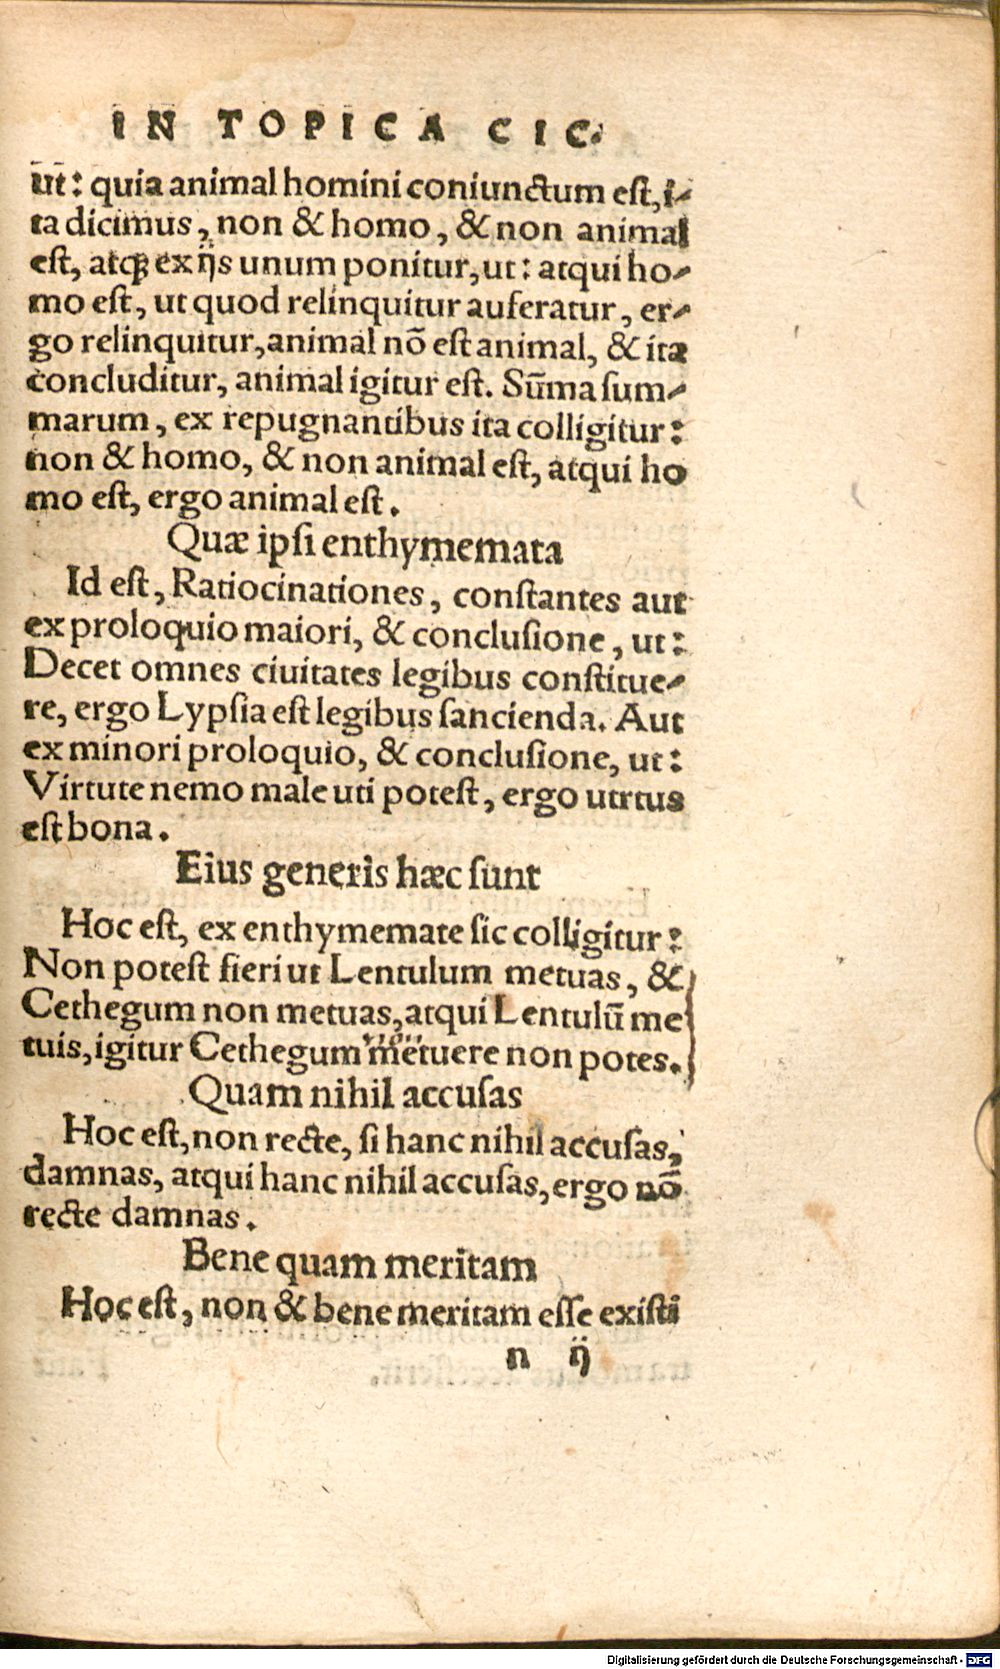 IN TOPICA CIC.
ut: quia animal homini coniunctum est, i-
ta dicimus, non & homo, & non animal
est, atqꝫ ex ijs unum ponitur, ut: atqui ho-
mo est, ut quod relinquitur auferatur, er-
go relinquitur, animal nō est animal, & ita
concluditur, animal igitur est. Sūma sum-
marum, ex repugnantibus ita colligitur:
non & homo, & non animal est, atqui ho
mo est, ergo animal est.
Quæ ipsi enthymemata
Id est, Ratiocinationes, constantes aut
ex proloquio maiori, & conclusione, ut:
Decet omnes ciuitates legibus constitue-
re, ergo Lypsia est legibus sancienda. Aut
ex minori proloquio, & conclusione, ut:
Virtute nemo male uti potest, ergo utrtus
est bona.
Eius generis hæc sunt
Hoc est, ex enthymemate sic colligitur:
Non potest fieri ut Lentulum metuas, &
Cethegum non metuas, atqui Lentulū me
tuis, igitur Cethegum metuere non potes.
Quam nihil accusas
Hoc est, non recte, si hanc nihil accusas,
damnas, atqui hanc nihil accusas, ergo nō
recte damnas.
Bene quam meritam
Hoc est, non & bene meritam esse existi
n ij
Digitalisierung gefördert durch die Deutsche Forschungsgemeinschaft - DFG